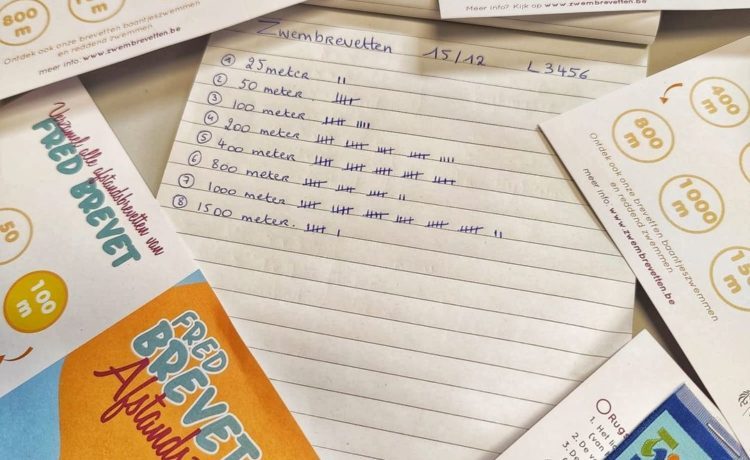 800
m
m
Ontdek ook onze brevetten baantjeszwemmen
en reddend zwemmen
meer info. www.zwembrevetten.be
Meer info? Kijk op www.zwembrevetten.be
Zwembrevetten 15/12 L3456
① 25 meter
② 50 meter
③ 100 meter
④ 200 meter
⑤ 400 meter
⑥ 800 meter
⑦ 1000 meter
⑧ 1500 meter.
Verzamel alle afstandsbrevetten van
FRED BREVET
50
100
m
FRED
BREVET
800
m
400
m
1000
m
Ontdek ook onze brevetten baantjeszwemmen
en reddend zwemmen
meer info. www.zwembrevetten.be
1. Het
2. De
3. De